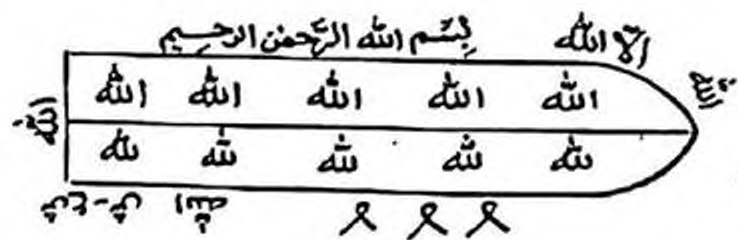 الّا الله بِسْمِ الله الرَّحْمٰن الرحيم
الله
الله الله الله الله الله
لله لله لله لله لله
الله
الله